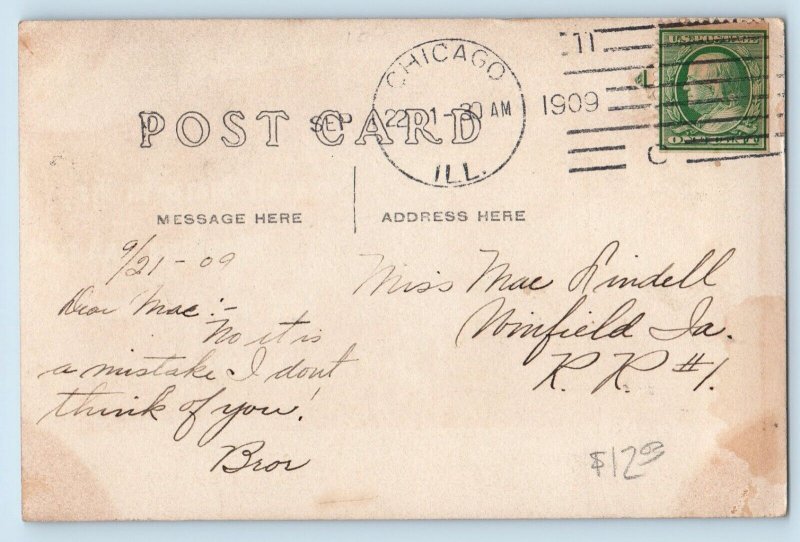 CHICAGO
SEP 22 1-30 AM
1909
ILL.
11
C
POST CARD
MESSAGE HERE
ADDRESS HERE
9/21-09
Dear Mae:-
No it is
a mistake I dont
think of you!
Bror
Miss Mae Lindell
Winfield Ia.
R. R. #1.
$12.00